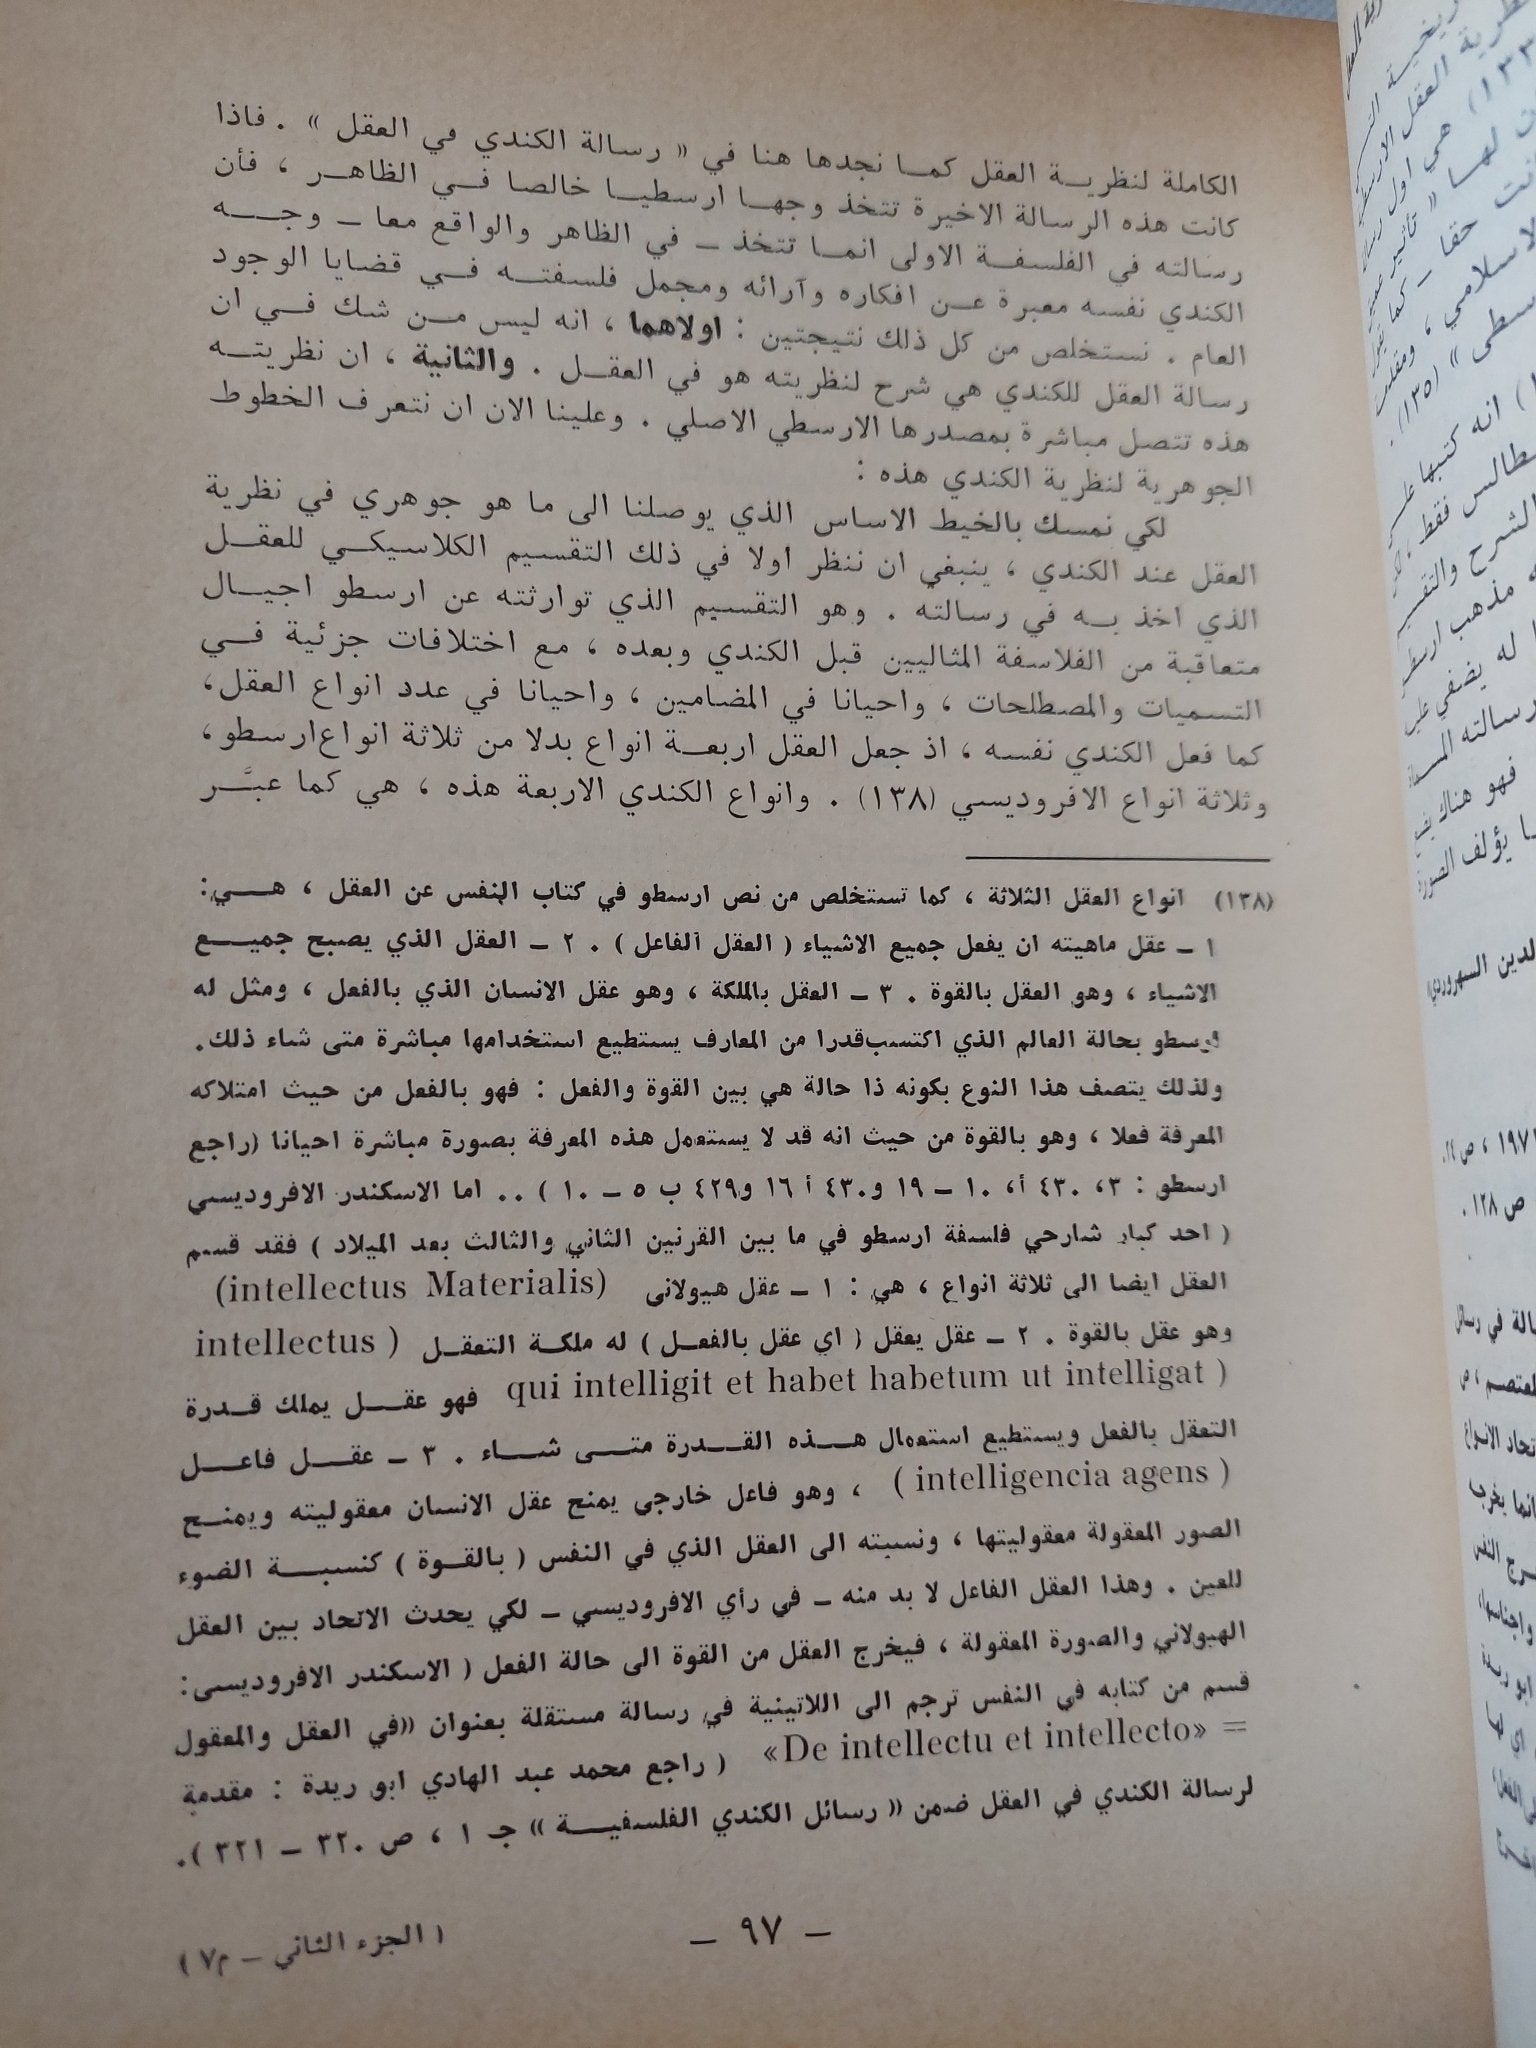 الكاملة لنظريــة العقل كمــا نجدها هنا في « رسالة الكندي في العقل » . فاذا
كانت هذه الرسالة الاخيرة تتخذ وجهــا ارسطيــا خالصا فــي الظاهــر ، فأن
رسالته في الفلسفــة الاولى انمــا تتخذ ــ في الظاهر والواقع معا ــ وجــه
الكندي نفسه معبرة عــن افكاره وآرائه ومجمل فلسفتــه فــي قضايا الوجود
العام . نستخلص من كل ذلك نتيجتين : اولاهما ، انه ليس مــن شك فــي ان
رسالة العقل للكندي هي شرح لنظريته هو في العقــل . والثانية ، ان نظريتــه
هذه تتصل مباشرة بمصدرها الارسطي الاصلي . وعلينا الان ان نتعرف الخطوط
الجوهرية لنظرية الكندي هذه :
لكي نمسك بالخيط الاساس الذي يوصلنا الى ما هو جوهري في نظرية
العقل عند الكندي ، ينبغي ان ننظر اولا في ذلك التقسيم الكلاسيكــي للعقــل
الذي اخذ بــه في رسالته . وهو التقسيم الذي توارثته عن ارسطو اجيــال
متعاقبة من الفلاسفة المثاليين قبل الكندي وبعده ، مع اختلافات جزئية فــي
التسميات والمصطلحات ، واحيانا في المضامين ، واحيانا في عدد انواع العقل،
كما فعل الكندي نفسه ، اذ جعل العقل اربعــة انواع بدلا من ثلاثة انواع ارسطو،
وثلاثة انواع الافروديسي (١٣٨) . وانواع الكندي الاربعة هذه ، هي كما عبَّــر
(١٣٨) انواع العقل الثلاثة ، كما تستخلص من نص ارسطو في كتاب النفس عن العقل ، هــي:
١ ــ عقل ماهيته ان يفعل جميع الاشياء ( العقل الفاعل ) . ٢ ــ العقل الذي يصبح جميــع
الاشياء ، وهو العقل بالقوة . ٣ ــ العقل بالملكة ، وهو عقل الانسان الذي بالفعل ، ومثل له
ارسطو بحالة العالم الذي اكتسب قدرا من المعارف يستطيع استخدامها مباشرة متى شاء ذلك.
ولذلك يتصف هذا النوع بكونه ذا حالة هي بين القوة والفعل : فهو بالفعل من حيث امتلاكه
المعرفة فعلا ، وهو بالقوة من حيث انه قد لا يستعمل هذه المعرفة بصورة مباشرة احيانا (راجع
ارسطو : ٣، ٤٣٠ أ، ١٠ ــ ١٩ و٤٣٠ أ ١٦ و٤٢٩ ب ٥ ــ ١٠ ) .. اما الاسكندر الافروديسي
( احد كبار شارحي فلسفة ارسطو في ما بين القرنين الثاني والثالث بعد الميلاد ) فقد قسم
العقل ايضا الى ثلاثة انواع ، هي : ١ ــ عقل هيولانى (intellectus Materialis)
وهو عقل بالقوة . ٢ ــ عقل يعقل ( اي عقل بالفعــل ) له ملكــة التعقــل ( intellectus
qui intelligit et habet habetum ut intelligat ) فهو عقــل يملك قــدرة
التعقل بالفعل ويستطيع استعمال هــذه القــدرة متــى شــاء . ٣ ــ عقــل فاعــل
( intelligencia agens ) ، وهو فاعل خارجى يمنح عقل الانسان معقوليته ويمنــح
الصور المعقولة معقوليتها ، ونسبته الى العقل الذي في النفس ( بالقــوة ) كنسبــة الضوء
للعين . وهذا العقل الفاعل لا بد منه ــ في رأي الافروديسي ــ لكي يحدث الاتحاد بين العقل
الهيولاني والصورة المعقولة ، فيخرج العقل من القوة الى حالة الفعل ( الاسكندر الافروديسى:
قسم من كتابه في النفس ترجم الى اللاتينية في رسالة مستقلة بعنوان «في العقل والمعقول
= «De intellectu et intellecto» ( راجع محمد عبد الهادي ابو ريدة : مقدمة
لرسالة الكندي في العقل ضمن « رسائل الكندي الفلسفيــة » جـ ١ ، ص ٣٢٠ ــ ٣٢١ ).
ــ ٩٧ ــ
( الجزء الثاني ــ م٧ )